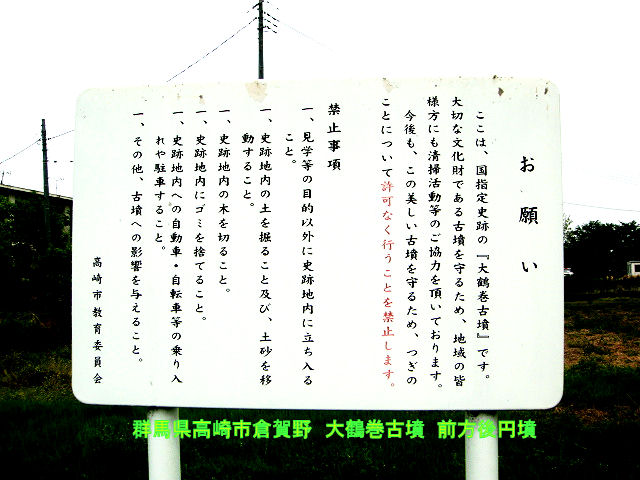 お願い
ここは、国指定史跡の『大鶴巻古墳』です。
大切な文化財である古墳を守るため、地域の皆
様方にも清掃活動等のご協力を頂いております。
今後も、この美しい古墳を守るため、つぎの
ことについて許可なく行うことを禁止します。
禁止事項
一、見学等の目的以外に史跡地内に立ち入る
こと。
一、史跡地内の土を掘ること及び、土砂を移
動すること。
一、史跡地内の木を切ること。
一、史跡地内にゴミを捨てること。
一、史跡地内への自動車・自転車等の乗り入
れや駐車すること。
一、その他、古墳への影響を与えること。
高崎市教育委員会
群馬県高崎市倉賀野 大鶴巻古墳 前方後円墳